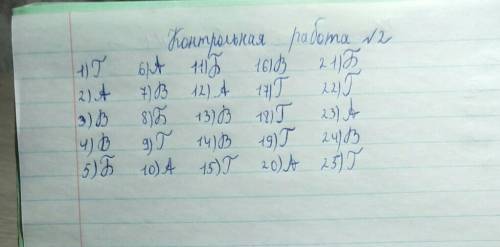 Контрольная работа №2
1) Г 6) А 11) Б 16) В 21) Б
2) А 7) В 12) А 17) Г 22) Г
3) В 8) Б 13) В 18) Г 23) А
4) В 9) Г 14) В 19) Г 24) В
5) Б 10) А 15) Г 20) А 25) Г